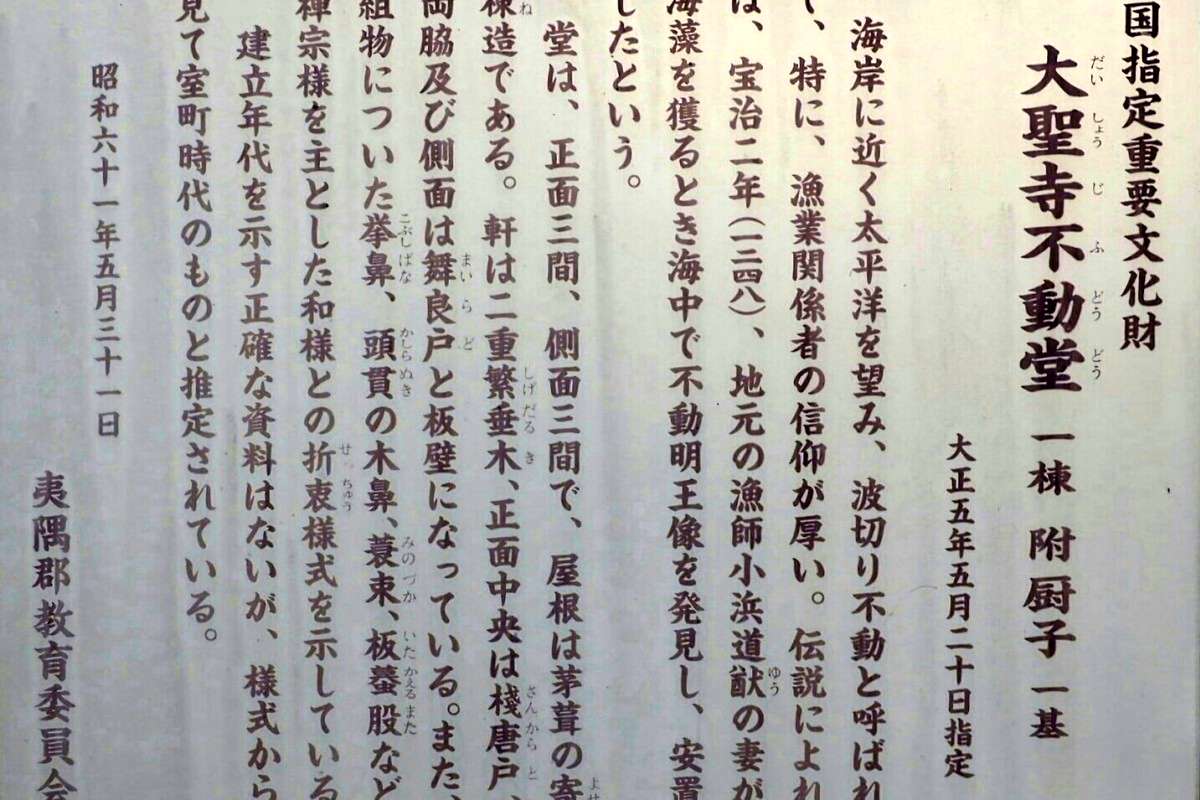 国指定重要文化財
大聖寺不動堂 一棟 附厨子 一基
だいしょうじふどうどう
大正五年五月二十日指定
海岸に近く太平洋を望み、波切り不動と呼ばれ
て、特に、漁業関係者の信仰が厚い。伝説によれ
ば、宝治二年(一二四八)、地元の漁師小浜道猷の妻が
ゆう
海藻を獲るとき海中で不動明王像を発見し、安置
したという。
堂は、正面三間、側面三間で、屋根は茅葺の寄
よせ
棟造である。軒は二重繁垂木、正面中央は棧唐戸、
ね しげだるき さんからと
両脇及び側面は舞良戸と板壁になっている。また、
まいらど
組物についた拳鼻、頭貫の木鼻、蓑束、板蟇股など
こぶしばな かしらぬき みのづか いたかえるまた
禅宗様を主とした和様との折衷様式を示している
せっちゅう
建立年代を示す正確な資料はないが、様式から
見て室町時代のものと推定されている。
昭和六十一年五月三十一日
夷隅郡教育委員会